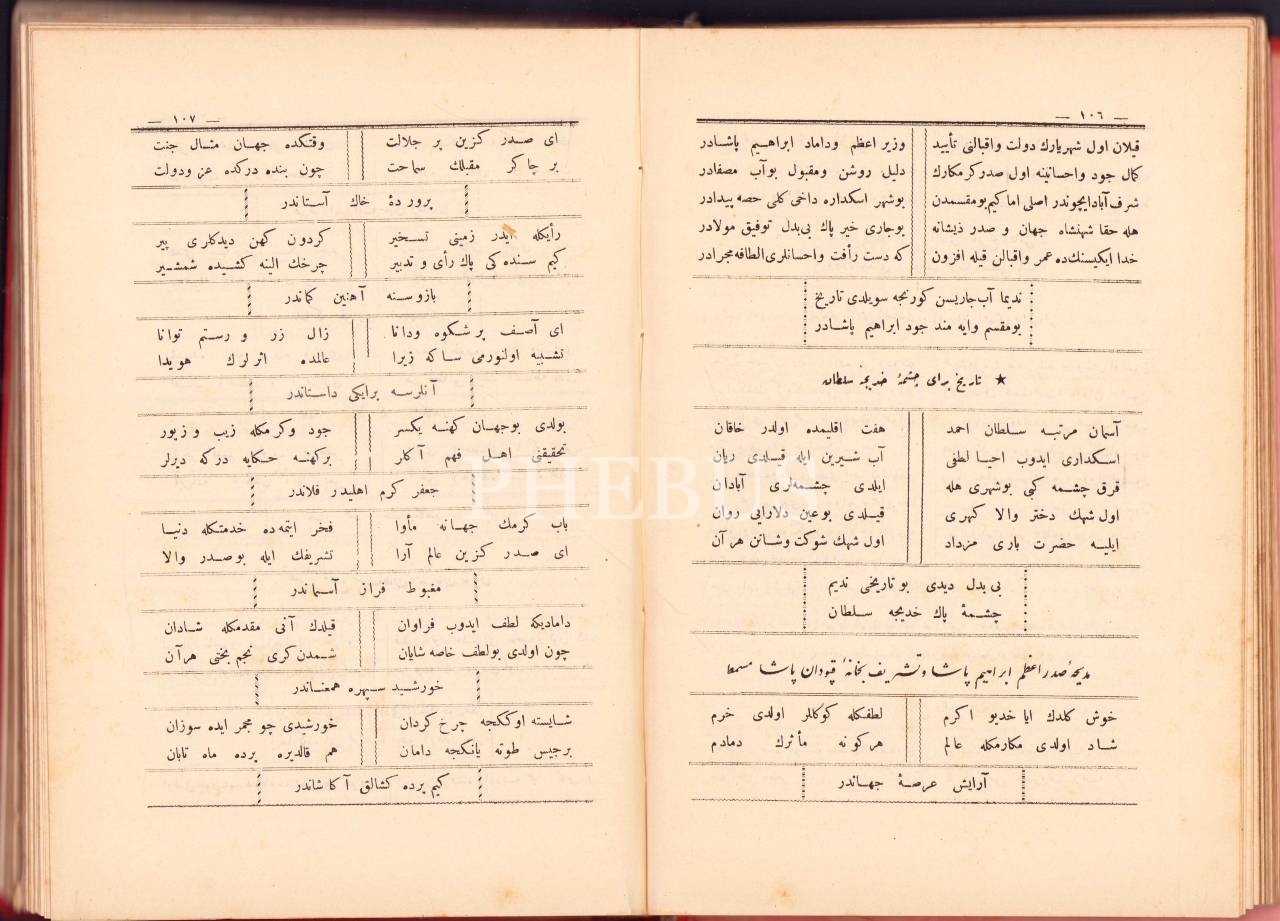 — ١٠٦ —
قیلان اول شهریارك دولت واقبالنی تأیید وزیر اعظم وداماد ابراهیم پاشادر
کمال جود واحسانینه اول صدر کرمکارك دلیل روشن ومقبول بوآب مصفادر
شرف آبادایچوندر اصلی اما کیم بومقسمدن بوشهر اسکداره داخی کلی حصه پیدادر
هله حقا شهنشاه جهان و صدر ذیشانه بوجاری خیر پاك بی‌بدل توفیق مولادر
خدا ایکیسنك‌ده عمر واقبالن قیله افزون که دست رأفت واحسانلری الطافه مجرادر
ندیما آب جاریسن کورنجه سویلدی تاریخ
بومقسم وایه مند جود ابراهیم پاشادر
★ تاریخ برای چشمهٔ خدیجه سلطان
آسمان مرتبه سلطان احمد هفت اقلیمده اولدر خاقان
اسکداری ایدوب احیا لطفی آب شیرین ایله قیلدی ریان
قرق چشمه کبی بوشهری هله ایلدی چشمه‌لری آبادان
اول شهك دختر والا کهری قیلدی بوعین دلارایی روان
ایلیه حضرت باری مزداد اول شهك شوکت وشانن هر آن
بی بدل دیدی بو تاریخی ندیم
چشمهٔ پاك خدیجه سلطان
مدیحهٔ صدر اعظم ابراهیم پاشا وتشریف بخانهٔ قپودان پاشا مسمعا
خوش کلدك ایا خدیو اکرم لطفکله کوکللر اولدی خرم
شاد اولدی مکارمکله عالم هر کونه مأثرك دمادم
آرایش عرصهٔ جهاندر
— ١٠٧ —
ای صدر کزین پر جلالت وقتکده جهان مثال جنت
بر چاکر مقبلك سماحت چون بنده درکده عز ودولت
پروردهٔ خاك آستاندر
رأیکله ایدر زمینی تسخیر کردون کهن دیدکلری پیر
کیم سنده کی پاك رأی و تدبیر چرخك الینه کشیده شمشیر
بازوسنه آهنین کماندر
ای آصف پر شکوه ودانا زال زر و رستم توانا
تشبیه اولنورمی ساکه زیرا عالمده اثرلرك هویدا
آنلرسه برایکی داستاندر
بولدی بوجهان کهنه یکسر جود وکرمکله زیب وزیور
تحقیقنی اهل فهم آکلار برکهنه حکایه درکه دیرلر
جعفر کرم اهلیدر فلاندر
باب کرمك جهانه مأوا فخر ایتمه‌ده خدمتکله دنیا
ای صدر کزین عالم آرا تشریفك ایله بوصدر والا
مغبوط فراز آسماندر
دامادیکه لطف ایدوب فراوان قیلدك آنی مقدمکله شادان
چون اولدی بولطف خاصه شایان شمدن کری نجم بختی هرآن
خورشید سپهره همعناندر
شایسته اوککجه چرخ کردان خورشیدی چو مجمر ایده سوزان
برجیس طوته یانکجه دامان هم قالدیره پرده ماه تابان
کیم پرده کشالق آکا شاندر
PHEBUS